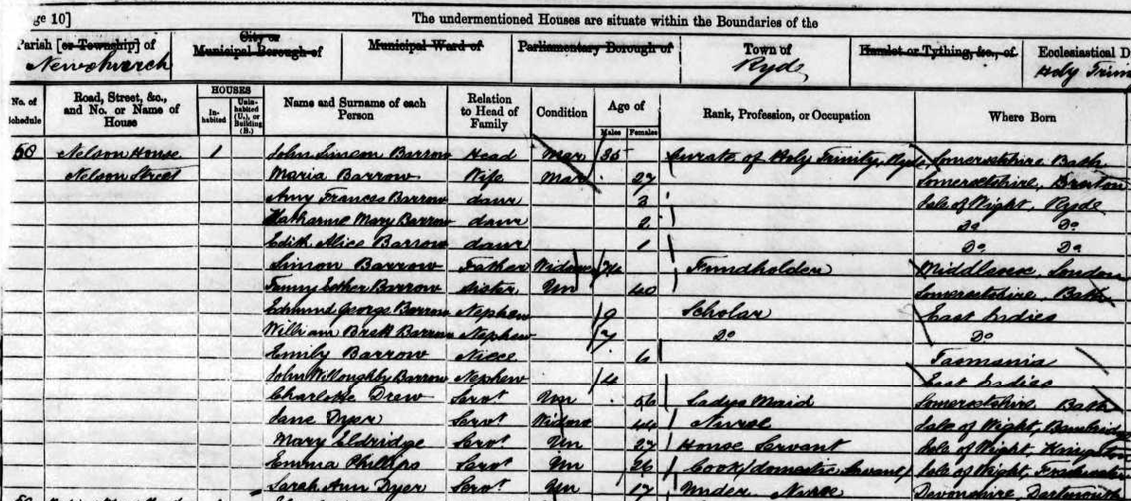 ge 10] The undermentioned Houses are situate within the Boundaries of the
Parish [or Township] of City or Municipal Borough of Municipal Ward of Parliamentary Borough of Town of Hamlet or Tything, &c., of Ecclesiastical D
Newchurch Ryde Holy Trin
No. of Schedule Road, Street, &c., and No. or Name of House HOUSES Inhabited Uninhabited (U.), or Building (B.) Name and Surname of each Person Relation to Head of Family Condition Age of Males Females Rank, Profession, or Occupation Where Born
58 Nelson House 1 John Simeon Barrow Head Mar 35 Curate of Holy Trinity, Ryde Somersetshire Bath
Nelson Street Maria Barrow Wife Mar 27 Somersetshire,
Amy Frances Barrow daur 3 Isle of Wight, Ryde
Katharine Mary Barrow daur 2 Do Do
Edith Alice Barrow daur 1 Do Do
Simon Barrow Father Widowr 74 Fundholder Middlesex London
Fanny Esther Barrow Sister Un 40 Somersetshire Bath
Edmund George Barrow Nephew 9 Scholar East Indies
William Brett Barrow Nephew 7 Do Do
Emily Barrow Niece 6 Tasmania
John Willoughby Barrow Nephew 4 East Indies
Charlotte Drew Servt Un 56 Ladys Maid Somersetshire Bath
Jane Dyer Servt Widow 44 Nurse Isle of Wight,
Mary Eldridge Servt Un 27 House Servant Isle of Wight,
Emma Phillips Servt Un 26 Cook/domestic Servant Isle of Wight,
Sarah Ann Dyer Servt Un 17 Under Nurse Devonshire Dartmouth